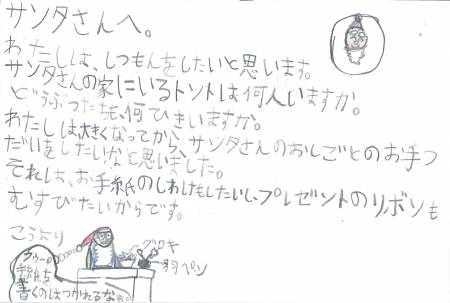 サンタさんへ。
わたしは、しつもんをしたいと思います。
サンタさんの家にいるトントは何人いますか。
どうぶつたちは、何ひきいますか。
わたしは大きくなってから、サンタさんのおしごとのお手つ
だいをしたいなと思いました。
それは、お手紙のしわけもしたいし、プレゼントのリボンも
むすびたいからです。
こうより
羽ペン
手紙を
書くのはつかれるなぁ。